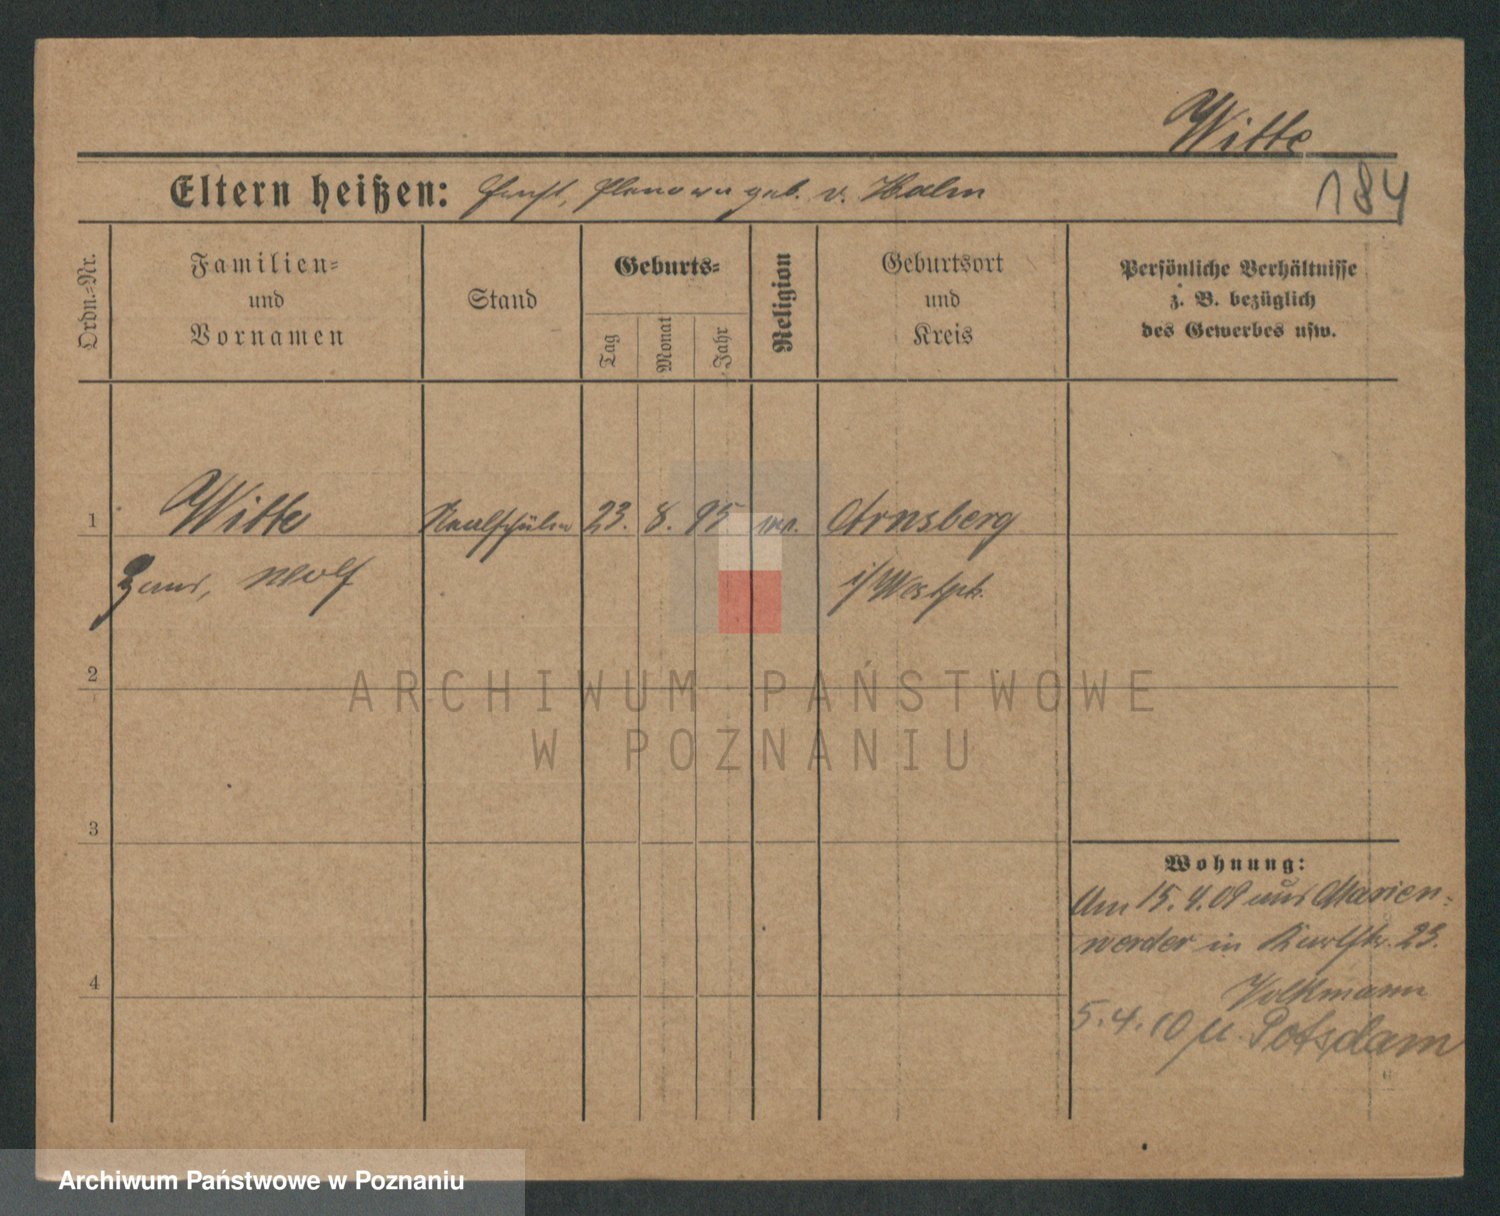 Witte
184
Eltern heißen: Ernst, geb. v. Halm
Ordn.-Nr.
Familien-
und
Vornamen
Stand
Geburts-
Tag
Monat
Jahr
Religion
Geburtsort
und
Kreis
Persönliche Verhältnisse
z. B. bezüglich
des Gewerbes usw.
1
Witte
Realschüler
23. 8. 95
Arnsberg
Hans, Wolf
i/Westph.
2
3
4
Wohnung:
Am 15. 4. 09 aus Marien-
werder in Karlstr. 23.
Volkmann
5.4.10 Potsdam
ARCHIWUM PAŃSTWOWE
W POZNANIU
Archiwum Państwowe w Poznaniu